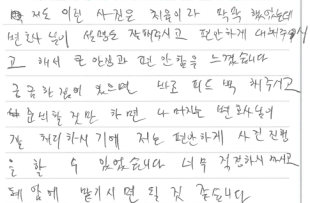 저도 이런 사건은 처음이라 막막 했었는데
변호사 님이 설명도 잘해주시고 편안하게 대해주시
고 해서 큰 안심과 편안함을 느꼈습니다
궁금한점이 있으면 바로 피드백 해주시고
준비할 것만 하면 나머지는 변호사님이
잘 처리하시기에 저는 편안하게 사건 진행
을 할 수 있었습니다 너무 걱정하시 마시고
에 맡기시면 될 것 같습니다